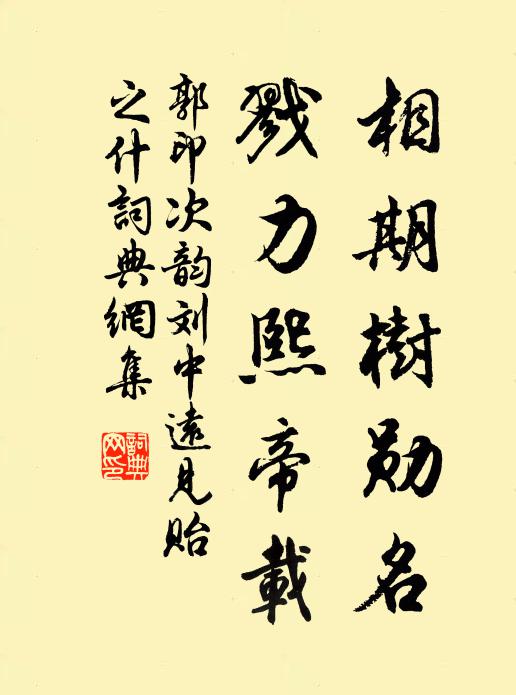 相期樹勋名
戮力熙帝載
郭印次韵刘中遠见贻
之什詞典網集
詞典網印